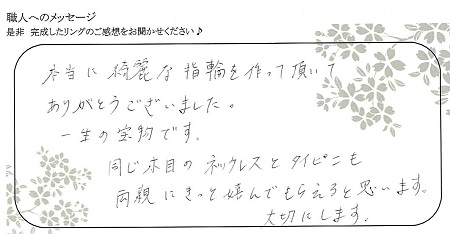 職人へのメッセージ
是非 完成したリングのご感想をお聞かせください♪
本当に綺麗な指輪を作って頂いて
ありがとうございました。
一生の宝物です。
同じ木目のネックレスとタイピンも
両親にきっと喜んでもらえると思います。
大切にします。